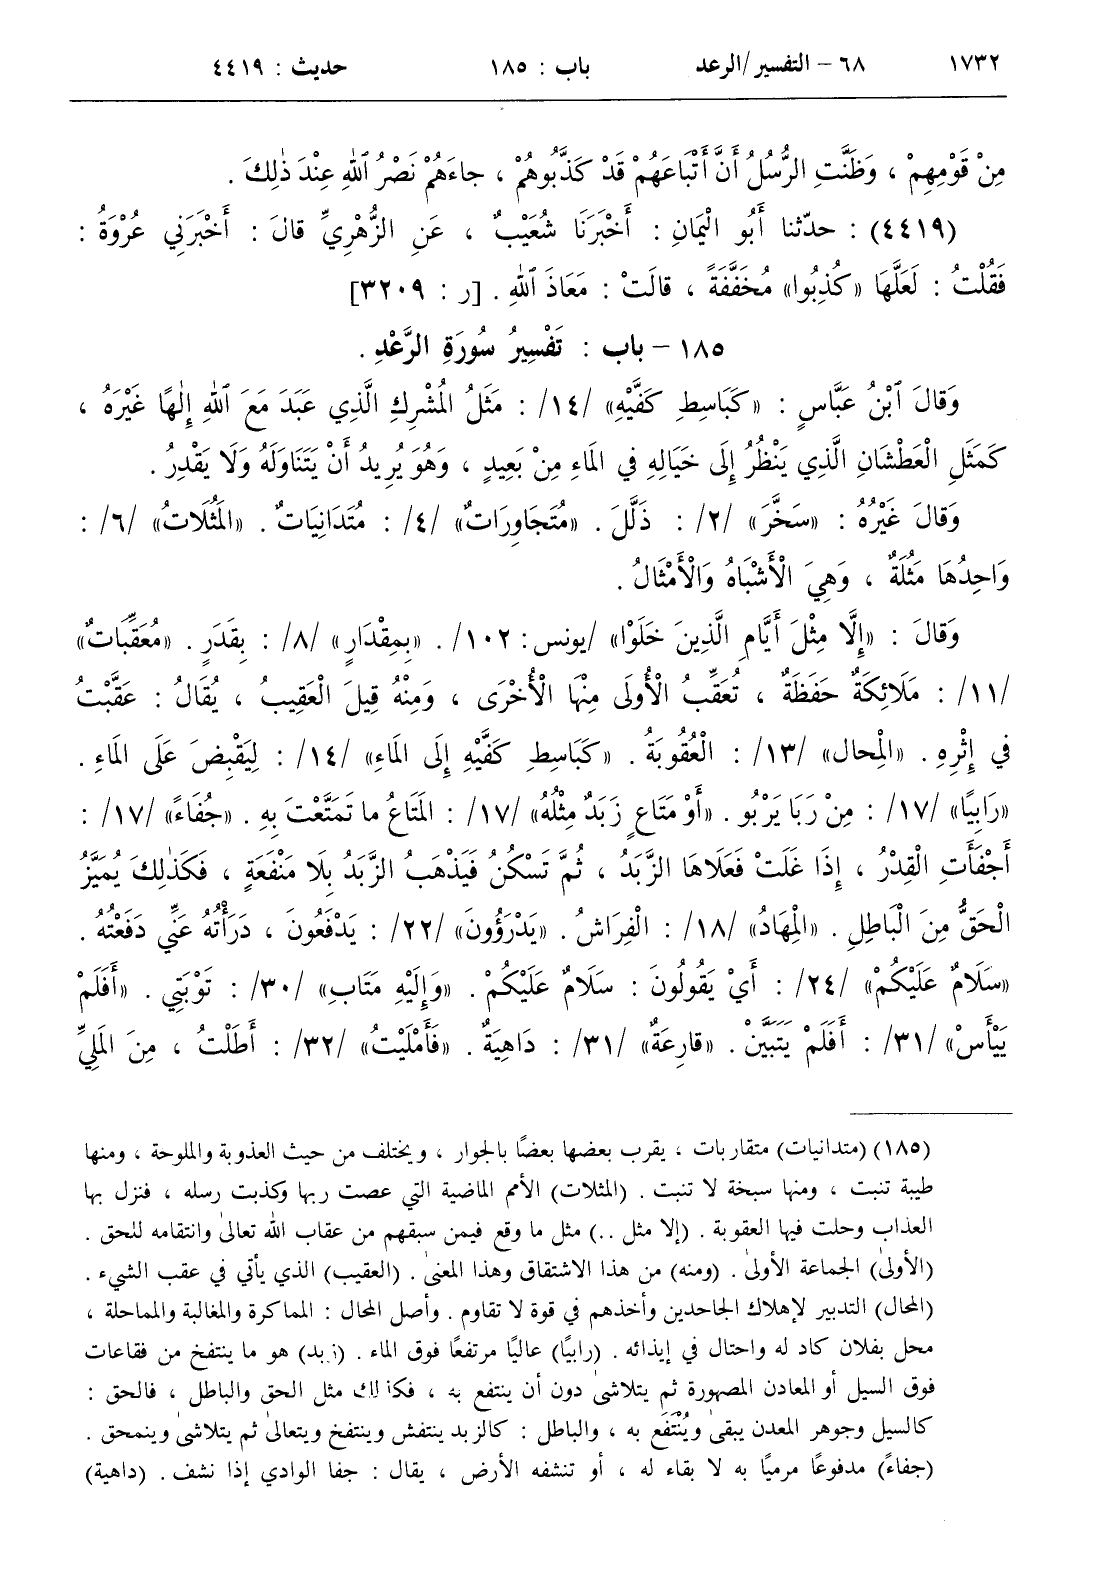 ١٧٣٢ ٦٨ - التفسير/الرعد باب : ١٨٥ حديث : ٤٤١٩
مِنْ قَوْمِهِمْ ، وَظَنَّتِ الرُّسُلُ أَنَّ أَتْبَاعَهُمْ قَدْ كَذَّبُوهُمْ ، جاءَهُمْ نَصْرُ ٱللهِ عِنْدَ ذٰلِكَ .
(٤٤١٩) : حدّثنا أَبُو الْيَمَانِ : أَخْبَرَنَا شُعَيْبٌ ، عَنِ الزُّهْرِيِّ قالَ : أَخْبَرَنِي عُرْوَةُ :
فَقُلْتُ : لَعَلَّهَا «كُذِبُوا» مُخَفَّفَةً ، قالَتْ : مَعَاذَ ٱللهِ . [ر : ٣٢٠٩]
١٨٥ - باب : تَفْسِيرُ سُورَةِ الرَّعْدِ .
وَقالَ ٱبْنُ عَبَّاسٍ : «كَبَاسِطِ كَفَّيْهِ» /١٤/ : مَثَلُ الْمُشْرِكِ الَّذِي عَبَدَ مَعَ ٱللهِ إِلٰهًا غَيْرَهُ ،
كَمَثَلِ الْعَطْشَانِ الَّذِي يَنْظُرُ إِلَى خَيَالِهِ فِي المَاءِ مِنْ بَعِيدٍ ، وَهُوَ يُرِيدُ أَنْ يَتَنَاوَلَهُ وَلَا يَقْدِرُ .
وَقالَ غَيْرُهُ : «سَخَّرَ» /٢/ : ذَلَّلَ . «مُتَجَاوِرَاتٌ» /٤/ : مُتَدَانِيَاتٌ . «المَثُلَاتُ» /٦/ :
وَاحِدُهَا مَثُلَةٌ ، وَهِيَ الْأَشْبَاهُ وَالْأَمْثَالُ .
وَقالَ : «إِلَّا مِثْلَ أَيَّامِ الَّذِينَ خَلَوْا» /يونس: ١٠٢/ . «بِمِقْدَارٍ» /٨/ : بِقَدَرٍ . «مُعَقِّبَاتٌ»
/١١/ : مَلَائِكَةٌ حَفَظَةٌ ، تُعَقِّبُ الْأُولَى مِنْهَا الْأُخْرَى ، وَمِنْهُ قِيلَ الْعَقِيبُ ، يُقَالُ : عَقَّبْتُ
في إِثْرِهِ . «الْمِحال» /١٣/ : الْعُقُوبَةُ . «كَبَاسِطِ كَفَّيْهِ إِلَى المَاءِ» /١٤/ : لِيَقْبِضَ عَلَى المَاءِ .
«رَابِيًا» /١٧/ : مِنْ رَبَا يَرْبُو . «أَوْ مَتَاعٍ زَبَدٌ مِثْلُهُ» /١٧/ : المَتَاعُ ما تَمَتَّعْتَ بِهِ . «جُفَاءً» /١٧/ :
أَجْفَأَتِ الْقِدْرُ ، إِذَا غَلَتْ فَعَلَاهَا الزَّبَدُ ، ثُمَّ تَسْكُنُ فَيَذْهَبُ الزَّبَدُ بِلَا مَنْفَعَةٍ ، فَكَذٰلِكَ يُمَيَّزُ
الْحَقُّ مِنَ الْبَاطِلِ . «الْمِهَادُ» /١٨/ : الْفِرَاشُ . «يَدْرَؤُونَ» /٢٢/ : يَدْفَعُونَ ، دَرَأْتُهُ عَنِّي دَفَعْتُهُ .
«سَلَامٌ عَلَيْكُمْ» /٢٤/ : أَيْ يَقُولُونَ : سَلَامٌ عَلَيْكُمْ . «وَإِلَيْهِ مَتَابِ» /٣٠/ : تَوْبَتِي . «أَفَلَمْ
يَيْأَسْ» /٣١/ : أَفَلَمْ يَتَبَيَّنْ . «قارِعَةٌ» /٣١/ : دَاهِيَةٌ . «فَأَمْلَيْتُ» /٣٢/ : أَطَلْتُ ، مِنَ المَلِيِّ
(١٨٥) (متدانيات) متقاربات ، يقرب بعضها بعضًا بالجوار ، ويختلف من حيث العذوبة والملوحة ، ومنها
طيبة تنبت ، ومنها سبخة لا تنبت . (المثلات) الأمم الماضية التي عصت ربها وكذبت رسله ، فنزل بها
العذاب وحلت فيها العقوبة . (إلا مثل ..) مثل ما وقع فيمن سبقهم من عقاب الله تعالىٰ وانتقامه للحق .
(الأولىٰ) الجماعة الأولىٰ . (ومنه) من هذا الاشتقاق وهذا المعنىٰ . (العقيب) الذي يأتي في عقب الشيء .
(المحال) التدبير لإهلاك الجاحدين وأخذهم في قوة لا تقاوم . وأصل المحال : المماكرة والمغالبة والمماحلة ،
محل بفلان كاد له واحتال في إيذائه . (رابيًا) عاليًا مرتفعًا فوق الماء . (زبد) هو ما ينتفخ من فقاعات
فوق السيل أو المعادن المصهورة ثم يتلاشىٰ دون أن ينتفع به ، فكذلك مثل الحق والباطل ، فالحق :
كالسيل وجوهر المعدن يبقىٰ ويُنْتَفَع به ، والباطل : كالزبد ينتفش وينتفخ ويتعالىٰ ثم يتلاشىٰ وينمحق .
(جفاءً) مدفوعًا مرميًا به لا بقاء له ، أو تنشفه الأرض ، يقال : جفا الوادي إذا نشف . (داهية)